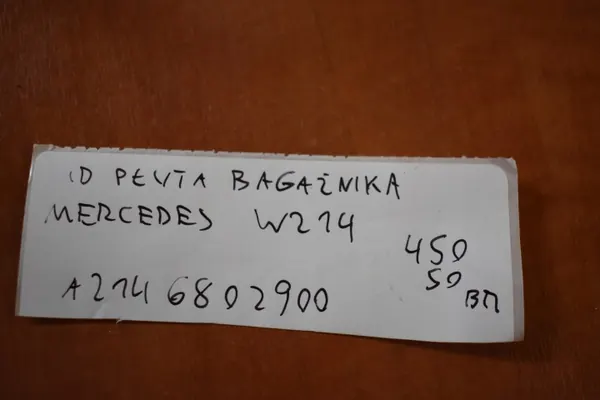 ID PŁYTA BAGAŻNIKA
MERCEDES W214
450
50
A2146802900